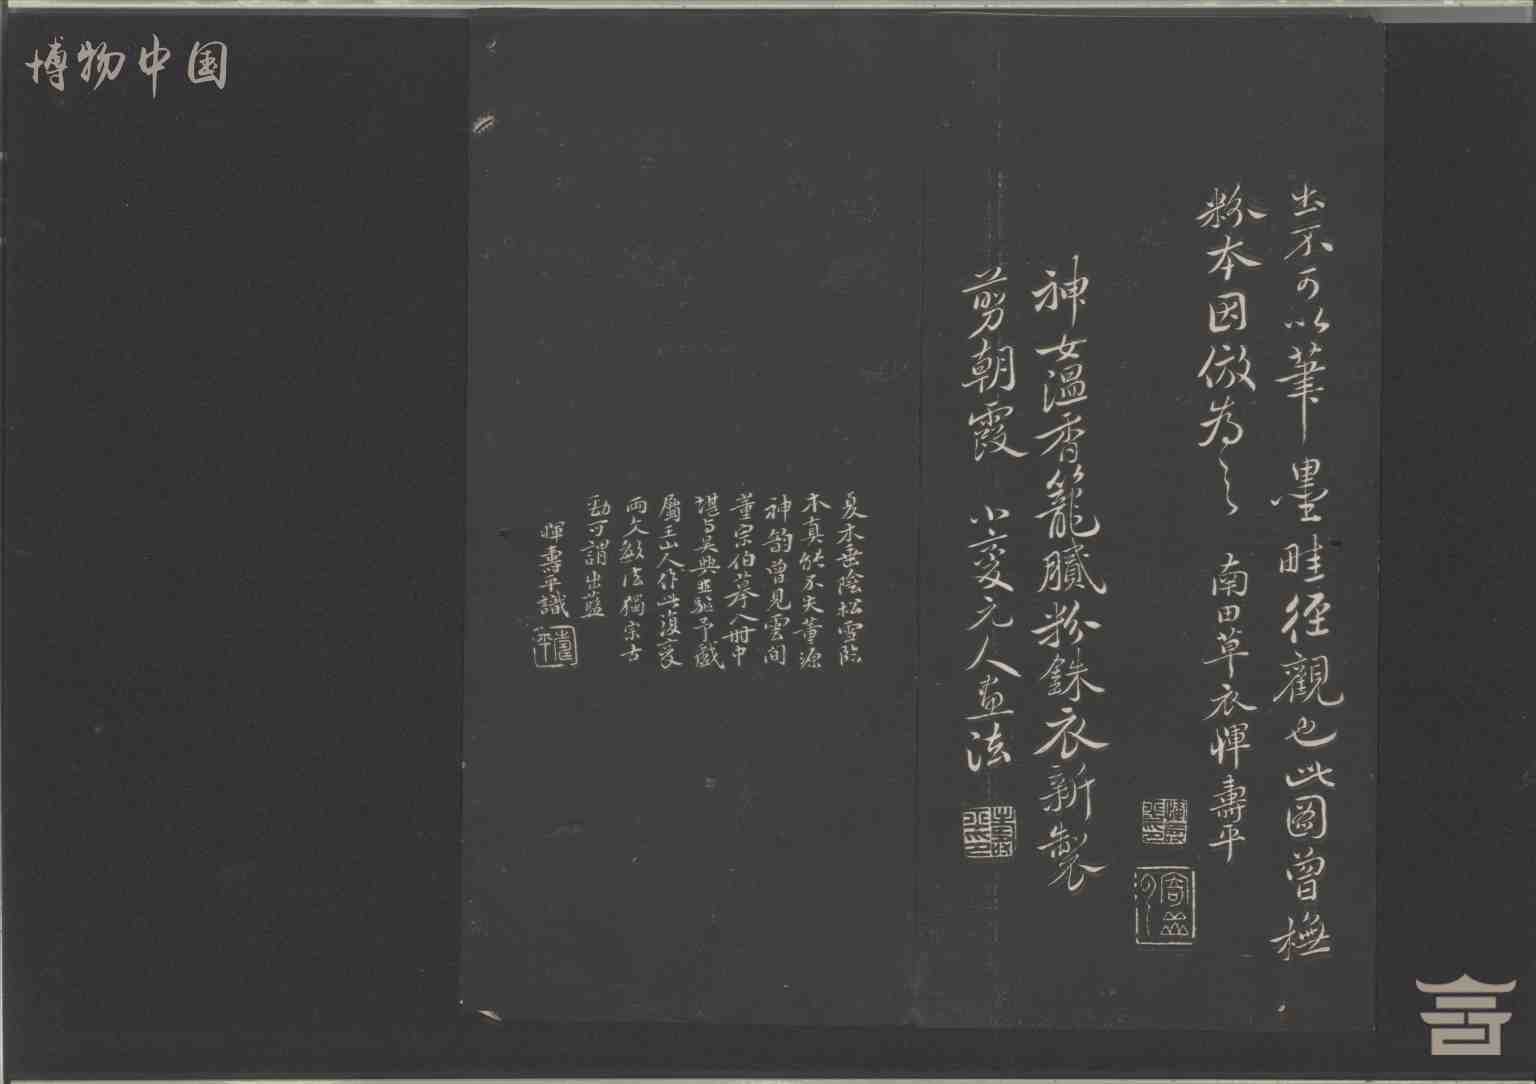 博物中国
出不可以筆墨畦徑觀也此圖曾橅
粉本因倣為之 南田草衣惲壽平
神女溫香籠膩粉銖衣新製
剪朝霞 小變元人畫法
夏木垂陰松雪臨
本真能不失董源
神韵曾見雲間
董宗伯摹入冊中
堪與吳興並駈予戲
屬王山人作此復变
兩文敏法獨宗古
勁可謂出藍
惲壽平識
壽平